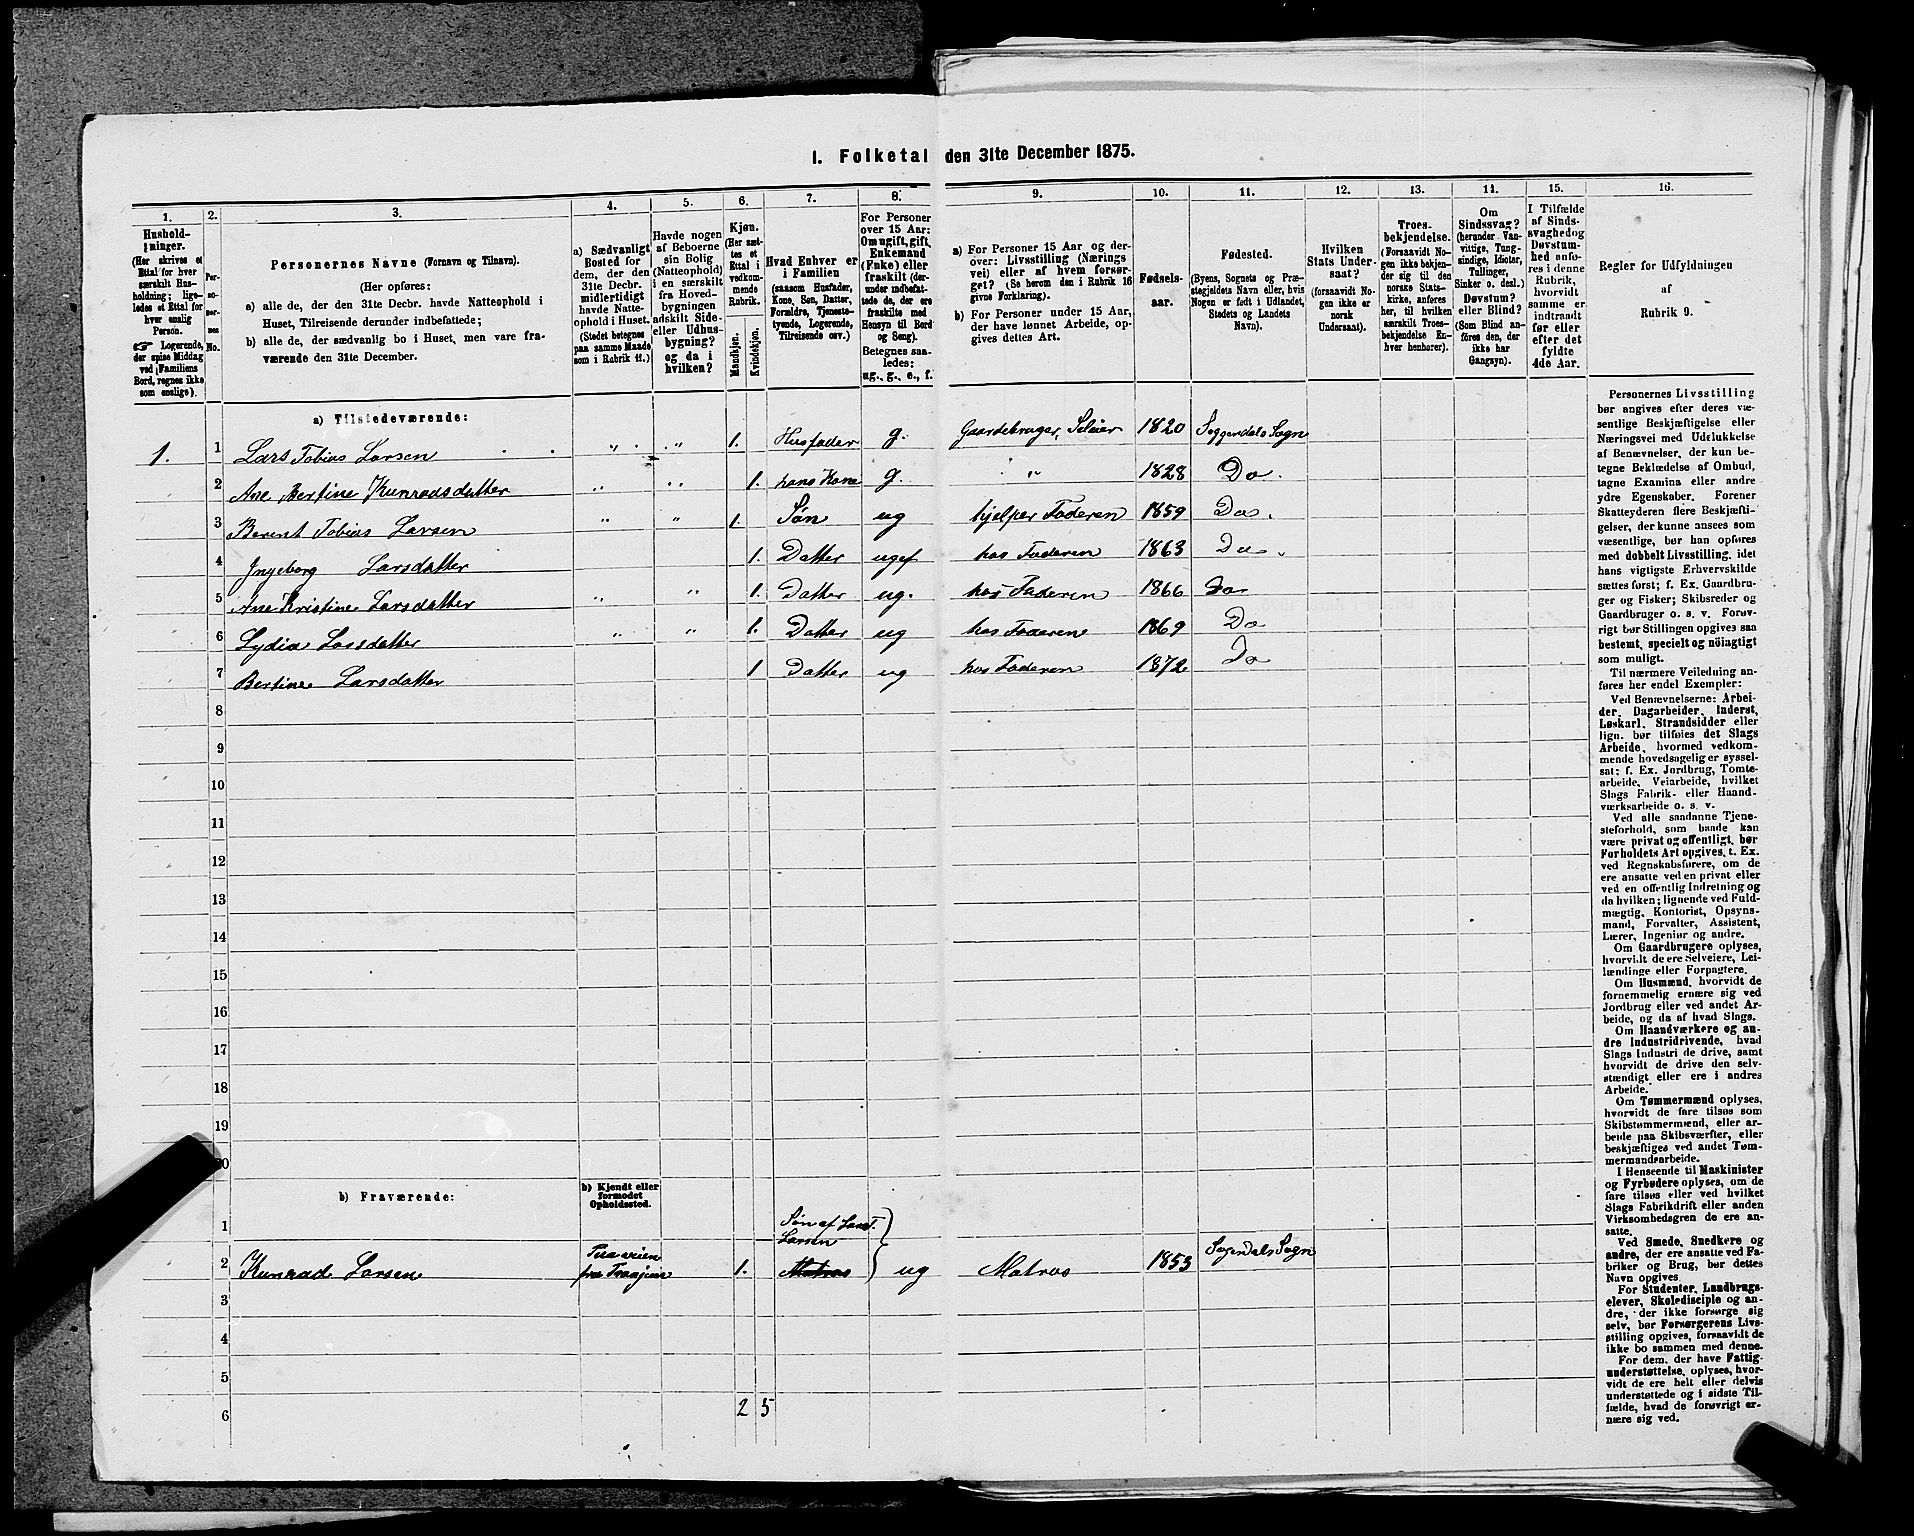 1. Folketal den 31te December 1875.
1. 2. 3. 4. 5. 6. 7. 8. 9. 10. 11. 12. 13. 14. 15. 16.
Hushold-
ninger.
(Her skrives et
Ettal for hver
særskilt Hus-
holdning; lige-
ledes et Ettal for
hver enslig
Person.
☞ Logerende,
der spise Middag
ved Familiens
Bord, regnes ikke
som enslige).
Per-
so-
ner-
nes
No.
Personernes Navne (Fornavn og Tilnavn).
(Her opføres:
a) alle de, der den 31te Decbr. havde Natteophold i
Huset, Tilreisende derunder indbefattede;
b) alle de, der sædvanlig bo i Huset, men vare fra-
værende den 31te December.
a) Sædvanligt
Bosted for
dem, der den
31te Decbr.
midlertidigt
havde Natte-
ophold i Huset.
(Stedet betegnes
paa samme Maade
som i Rubrik 11.)
Havde nogen
af Beboerne
sin Bolig
(Natteophold)
i en særskilt
fra Hoved-
bygningen
adskilt Side-
eller Udhus-
bygning?
og da i
hvilken?
Kjøn.
(Her sæt-
tes et
Ettal i
vedkom-
mende
Rubrik.
Mandkjøn.
Kvindekjøn.
Hvad Enhver er
i Familien
(saasom Husfader,
Kone, Søn, Datter,
Forældre, Tjeneste-
tyende, Logerende,
Tilreisende osv.)
For Personer
over 15 Aar:
Om ugift, gift,
Enkemand
(Enke) eller
fraskilt (der-
under indbefat-
tede de, der ere
fraskilte med
Hensyn til Bord
og Seng).
Betegnes saa-
ledes:
ug., g., e., f.
a) For Personer 15 Aar og der-
over: Livsstilling (Nærings
vei) eller af hvem forsør-
get? (Se herom den i Rubrik 16
givne Forklaring).
b) For Personer under 15 Aar,
der have lønnet Arbeide, op-
gives dettes Art.
Fødsels-
aar.
Fødested.
(Byens, Sognets og Præ-
stegjeldets Navn eller, hvis
Nogen er født i Udlandet,
Stedets og Landets
Navn).
Hvilken
Stats Under-
saat?
(forsaavidt No-
gen ikke er
norsk
Undersaat).
Troes-
bekjendelse.
(Forsaavidt No-
gen ikke bekjen-
der sig til den
norske Stats-
kirke, anføres
her, til hvilken
særskilt Troes-
bekjendelse En-
hver henhører).
Om
Sindssvag?
(herunder Van-
vittige, Tung-
sindige, Idioter,
Tullinger,
Sinker o. desl.)
Døvstum?
eller Blind?
(Som Blind an-
føres den, der
ikke har
Gangsyn).
I Tilfælde
af Sinds-
svaghed og
Døvstum-
hed anfø-
res i denne
Rubrik,
hvorvidt
samme er
indtraadt
før eller
efter det
fyldte
4de Aar.
Regler for Udfyldningen
af
Rubrik 9.
a) Tilstedeværende:
1. 1 Lars Tobias Larsen „ „ 1. Husfader g. Gaardebruger, Seleier 1820 Soggendals Sogn
2 Ane Bertine Kunradsdatter „ „ 1. hans Kone g. „ 1828 Do.
3 Berent Tobias Larsen „ „ 1. Søn ug hjelper Faderen 1859 Do.
4 Ingeborg Larsdatter 1. Datter ugef hos Faderen 1863 Do.
5 Ane Kristine Larsdatter „ „ 1. Datter ug. hos Faderen 1866 Do
6 Lydia Larsdatter „ „ 1. Datter ug hos Faderen 1869 Do
7 Bertine Larsdatter 1 Datter ug hos Faderen 1872 Do
8
9
10
11
12
13
14
15
16
17
18
19
20
b) Fraværende:
b) Kjendt eller
formodet
Opholdssted.
1 Søn af Lars T.
Larsen
2 Kunrad Larsen fra 1. Matros ug Matros 1853 Sogendals Sogn
3
4
5
6 2 5
Personernes Livsstilling
bør angives efter deres væ-
sentlige Beskjæftigelse eller
Næringsvei med Udelukkelse
af Benævnelser, der kun be-
tegne Beklædelse af Ombud,
tagne Examina eller andre
ydre Egenskaber. Forener
Skatteyderen flere Beskjæfti-
gelser, der kunne ansees som
væsentlige, bør han opføres
med dobbelt Livsstilling, idet
hans vigtigste Erhvervskilde
sættes først; f. Ex. Gaardbru-
ger og Fisker; Skibsreder og
Gaardbruger o. s. v. Forøv-
rigt bør Stillingen opgives saa
bestemt, specielt og nöiagtigt
som muligt.
Til nærmere Veiledning an-
føres her endel Exempler:
Ved Benævnelserne: Arbei-
der, Dagarbeider, Inderst,
Løskarl, Strandsidder eller
lign. bør tilføies det Slags
Arbeide, hvormed vedkom-
mende hovedsagelig er syssel-
sat; f. Ex. Jordbrug, Tomte-
arbeide, Veiarbeide, hvilket
Slags Fabrik- eller Haand-
værksarbeide o. s. v.
Ved alle saadanne Tjene-
steforhold, som baade kan
være privat og offentligt, bør
Forholdets Art opgives, t. Ex.
ved Regnskabsførere, om de
ere ansatte ved en privat eller
ved en offentlig Indretning og
da hvilken; lignende ved Fuld-
mægtig, Kontorist, Opsyns-
mand, Forvalter, Assistent,
Lærer, Ingeniør og andre.
Om Gaardbrugere oplyses,
hvorvidt de ere Selveiere, Lei-
lændinge eller Forpagtere.
Om Husmænd, hvorvidt de
fornemmelig ernære sig ved
Jordbrug eller ved andet Ar-
beide, og da af hvad Slags.
Om Haandværkere og an-
dre Industridrivende, hvad
Slags Industri de drive, samt
hvorvidt de drive den selv-
stændigt eller ere i andres
Arbeide.
Om Tømmermænd oplyses,
hvorvidt de fare tilsøs som
Skibstømmermænd, eller ar-
beide paa Skibsværfter, eller
beskjæftiges ved andet Tøm-
mermandsarbeide.
I Henseende til Maskinister
og Fyrbødere oplyses, om de
fare tilsøs eller ved hvilket
Slags Fabrikdrift eller anden
Virksomhedsgren de ere an-
satte.
Ved Smede, Snedkere og
andre, der ere ansatte ved Fa-
briker og Brug, bør dettes
Navn opgives.
For Studenter, Landbrugs-
elever, Skoledisciple og an-
dre, der ikke forsørge sig
selv, bør Forsørgerens Livs-
stilling opgives, forsaavidt de
ikke bo sammen med denne.
For dem, der have Fattig-
understøttelse, oplyses, hvor-
vidt de ere helt eller delvis
understøttede og i sidste Til-
fælde, hvad de forøvrigt er-
nære sig ved.